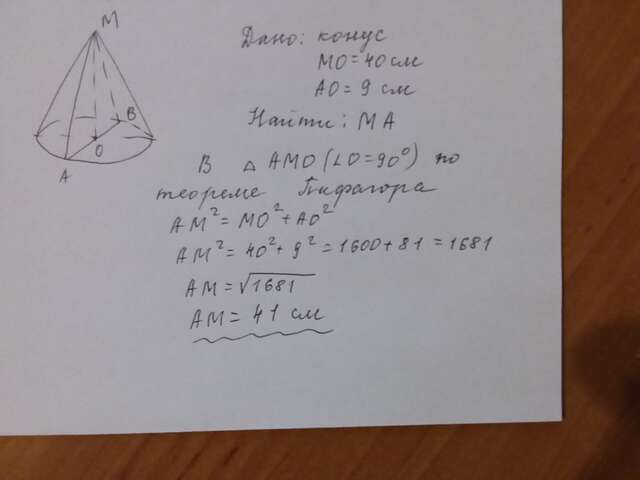 M
B
O
A
Дано: конус
MO = 40 см
AO = 9 см
Найти: MA
В △ AMO (∠O = 90°) по
теореме Пифагора
AM² = MO² + AO²
AM² = 40² + 9² = 1600 + 81 = 1681
AM = √1681
AM = 41 см